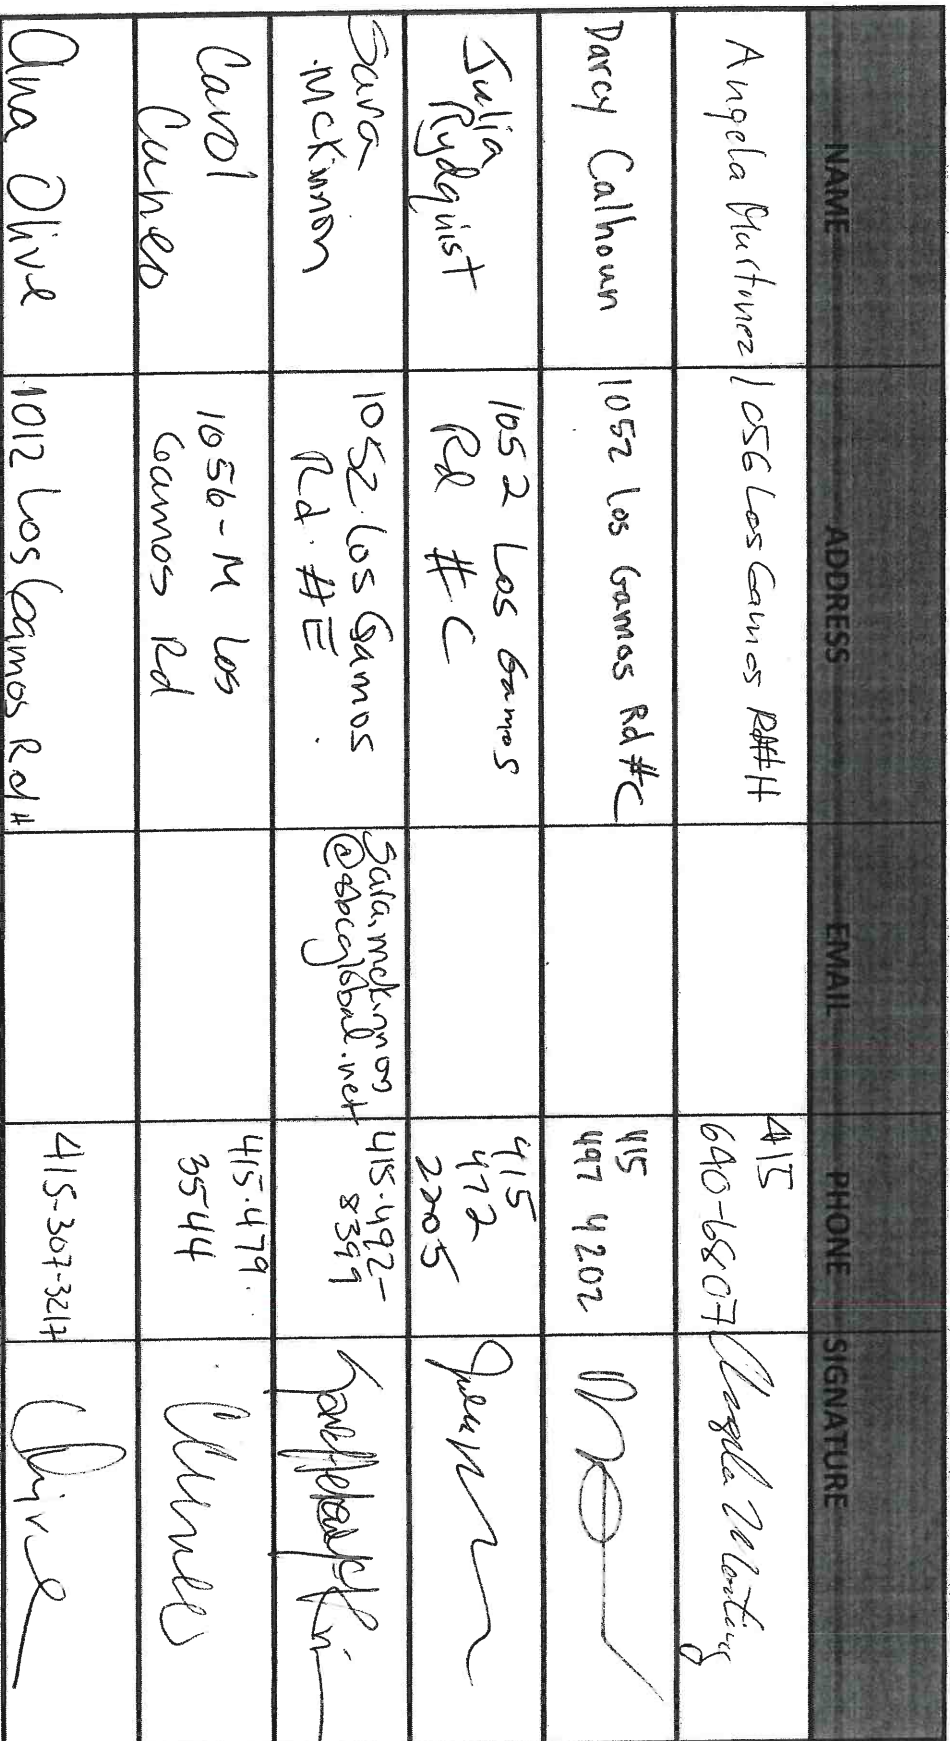 NAME ADDRESS EMAIL PHONE SIGNATURE
Angela Martinez 1056 Los Gamos Rd #H 415
640-6807
Darcy Calhoun 1052 Los Gamos Rd #C 415
497 4202
Julia
Rydquist
1052 Los Gamos
Rd #C
415
472
2205
Sara
McKinnon
1052 Los Gamos
Rd. #E
sara.mckinnon
@sbcglobal.net
415.492-
8399
Carol
Cuneo
1056-M Los
Gamos Rd
415.479.
3544
Ana Olive 1012 Los Gamos Rd # 415-307-3217